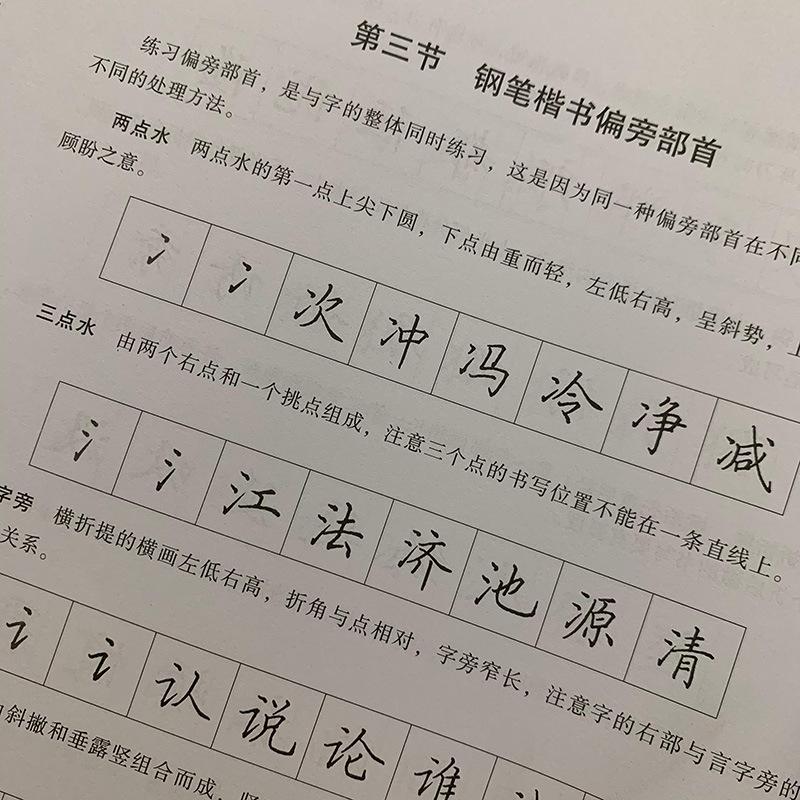 第三节 钢笔楷书偏旁部首
练习偏旁部首，是与字的整体同时练习，这是因为同一种偏旁部首在不同
不同的处理方法。
两点水 两点水的第一点上尖下圆，下点由重而轻，左低右高，呈斜势，上
顾盼之意。
冫 冫 次 冲 冯 冷 净 减
三点水 由两个右点和一个挑点组成，注意三个点的书写位置不能在一条直线上。
氵 氵 江 法 济 池 源 清
字旁 横折提的横画左低右高，折角与点相对，字旁窄长，注意字的右部与言字旁的
关系。
讠 讠 认 说 论 谁
斜撇和垂露竖组合而成，竖